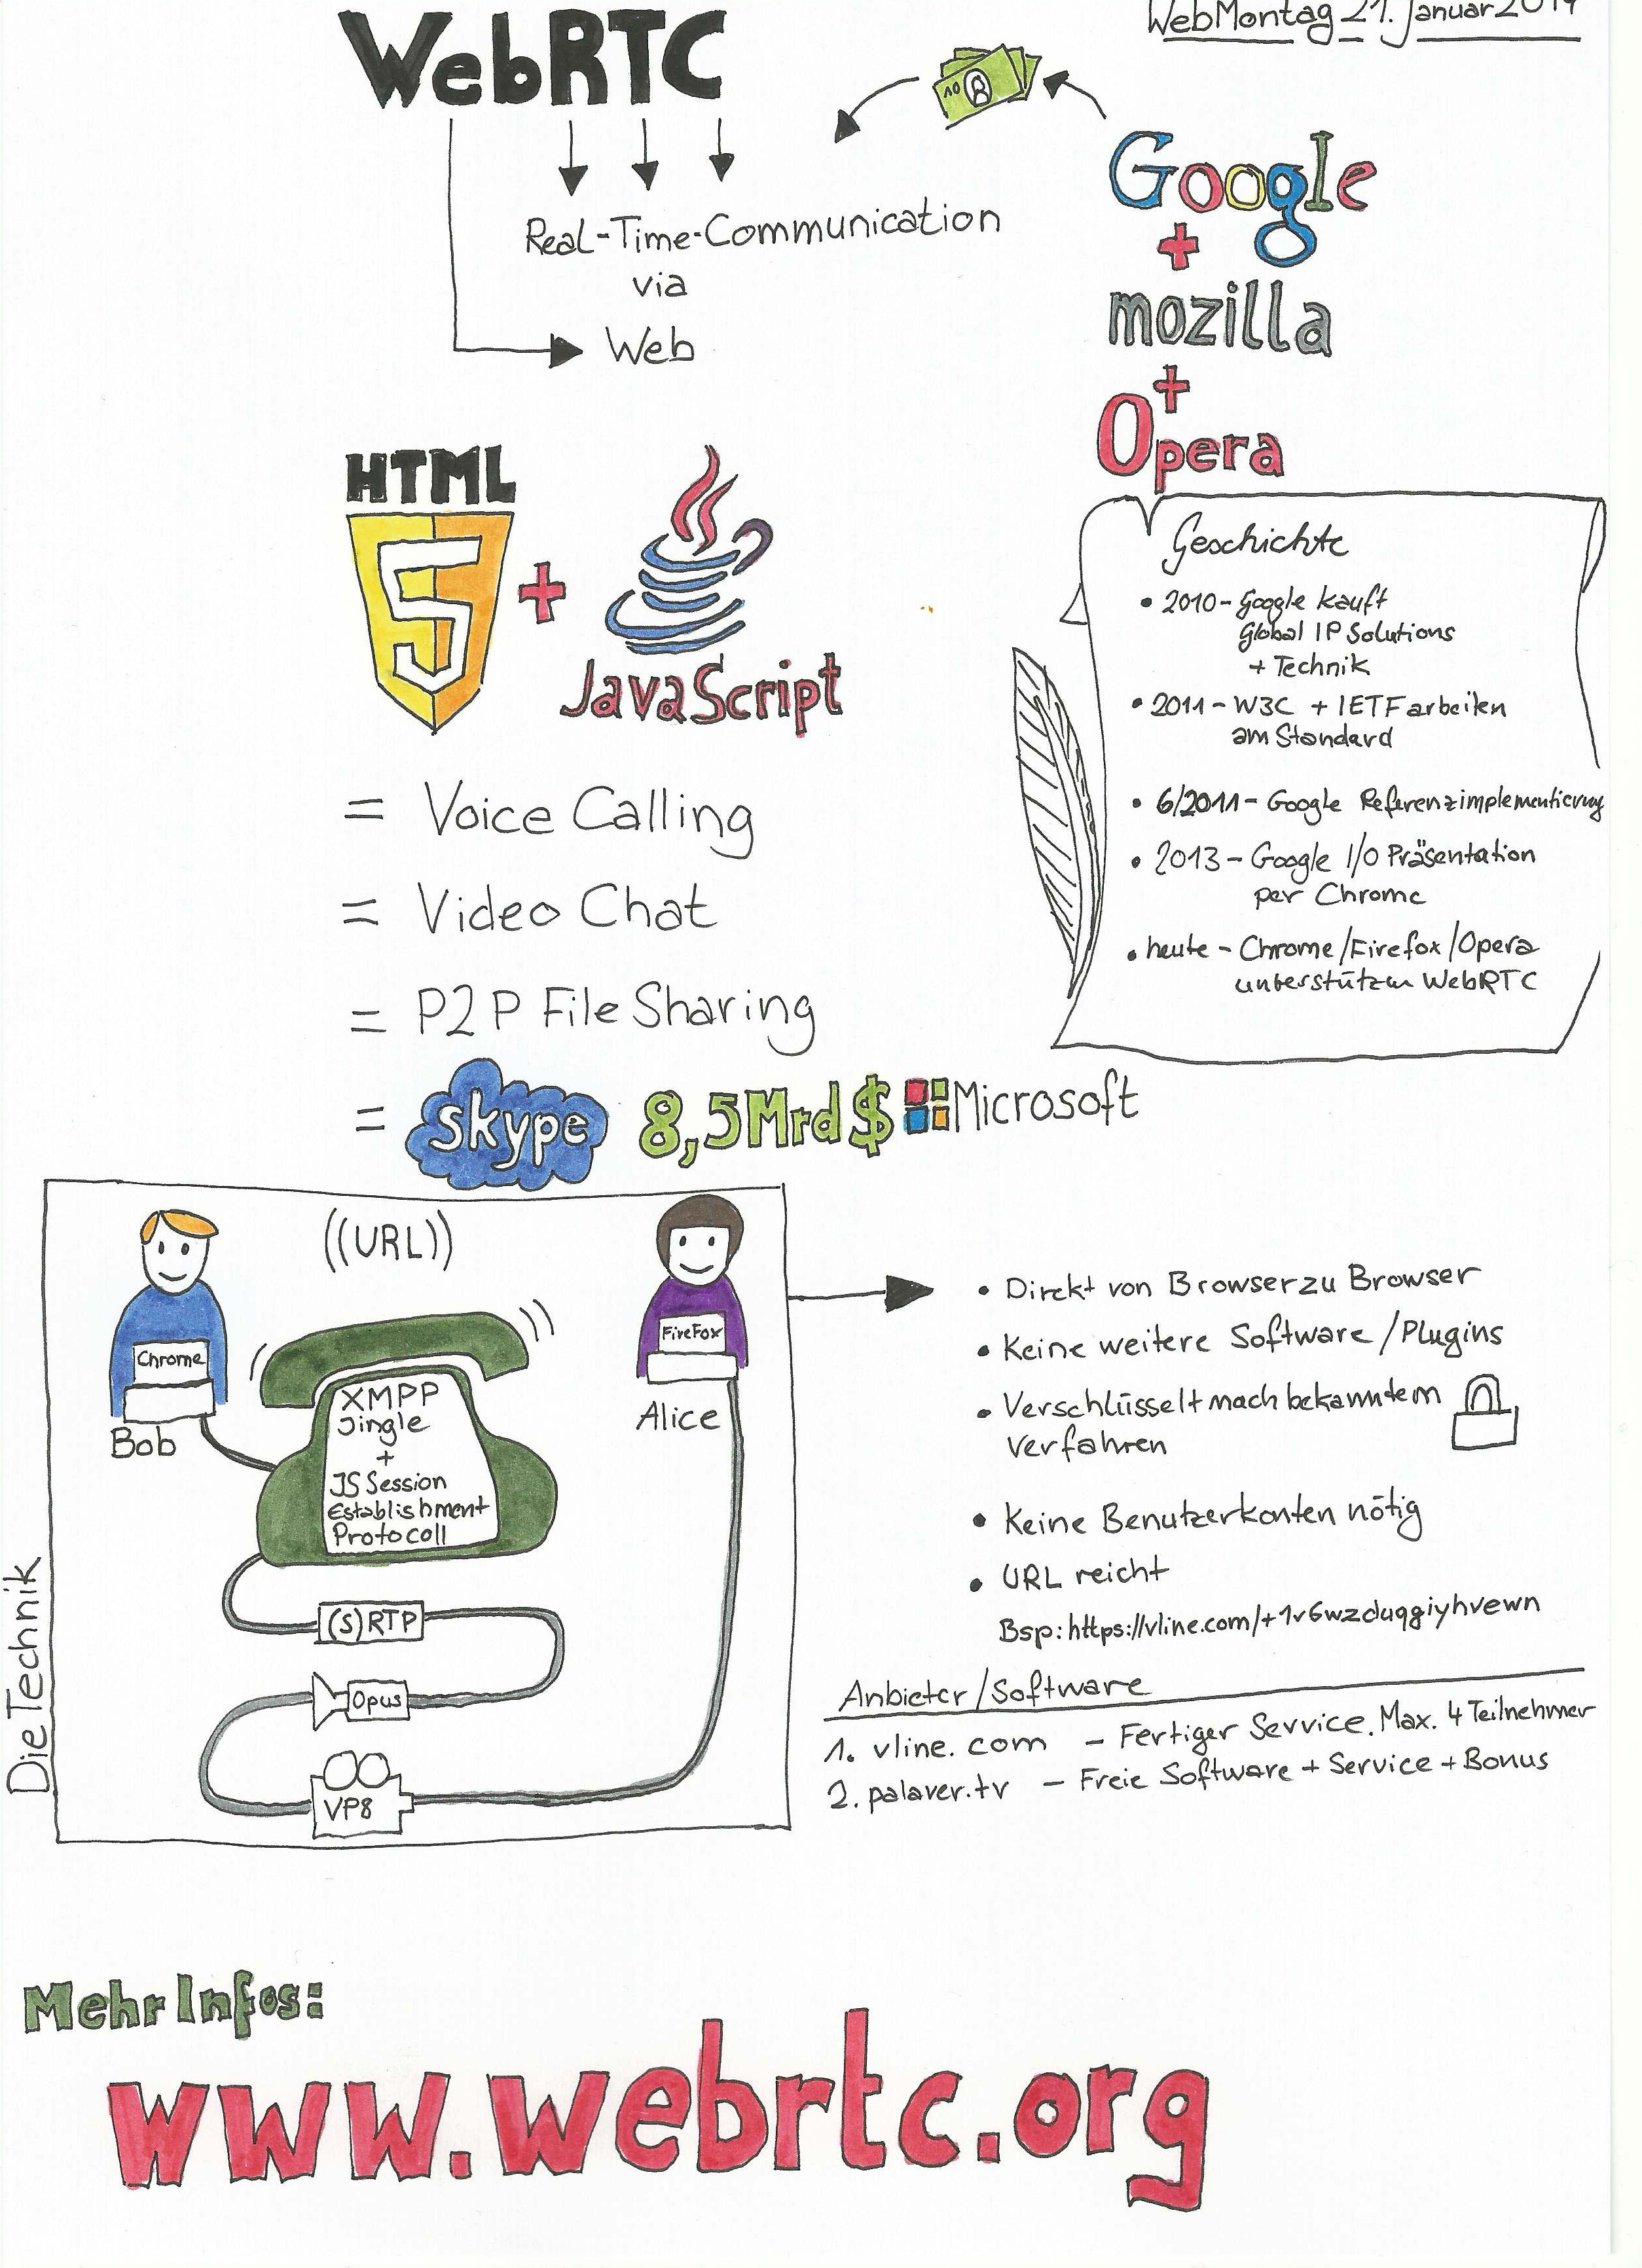 WebMontag 21. Januar 2014
WebRTC
Real-Time-Communication
via
Web
10
Google
+
mozilla
+
Opera
HTML
5
+
JavaScript
= Voice Calling
= Video Chat
= P2P File Sharing
= skype 8,5 Mrd $ Microsoft
Geschichte
• 2010 - Google kauft
Global IP Solutions
+ Technik
• 2011 - W3C + IETF arbeiten
am Standard
• 6/2011 - Google Referenzimplementierung
• 2013 - Google I/O Präsentation
per Chrome
• heute - Chrome/Firefox/Opera
unterstützen WebRTC
Die Technik
((URL))
Chrome
Bob
FireFox
Alice
XMPP
Jingle
+
JS Session
Establishment
Protocoll
(S)RTP
Opus
VP8
• Direkt von Browser zu Browser
• Keine weitere Software/Plugins
• Verschlüsselt nach bekanntem
Verfahren
• Keine Benutzerkonten nötig
• URL reicht
Bsp: https://vline.com/+1v6wzduqgiyhvewn
Anbieter/Software
1. vline.com - Fertiger Service. Max. 4 Teilnehmer
2. palaver.tv - Freie Software + Service + Bonus
Mehr Infos:
www.webrtc.org